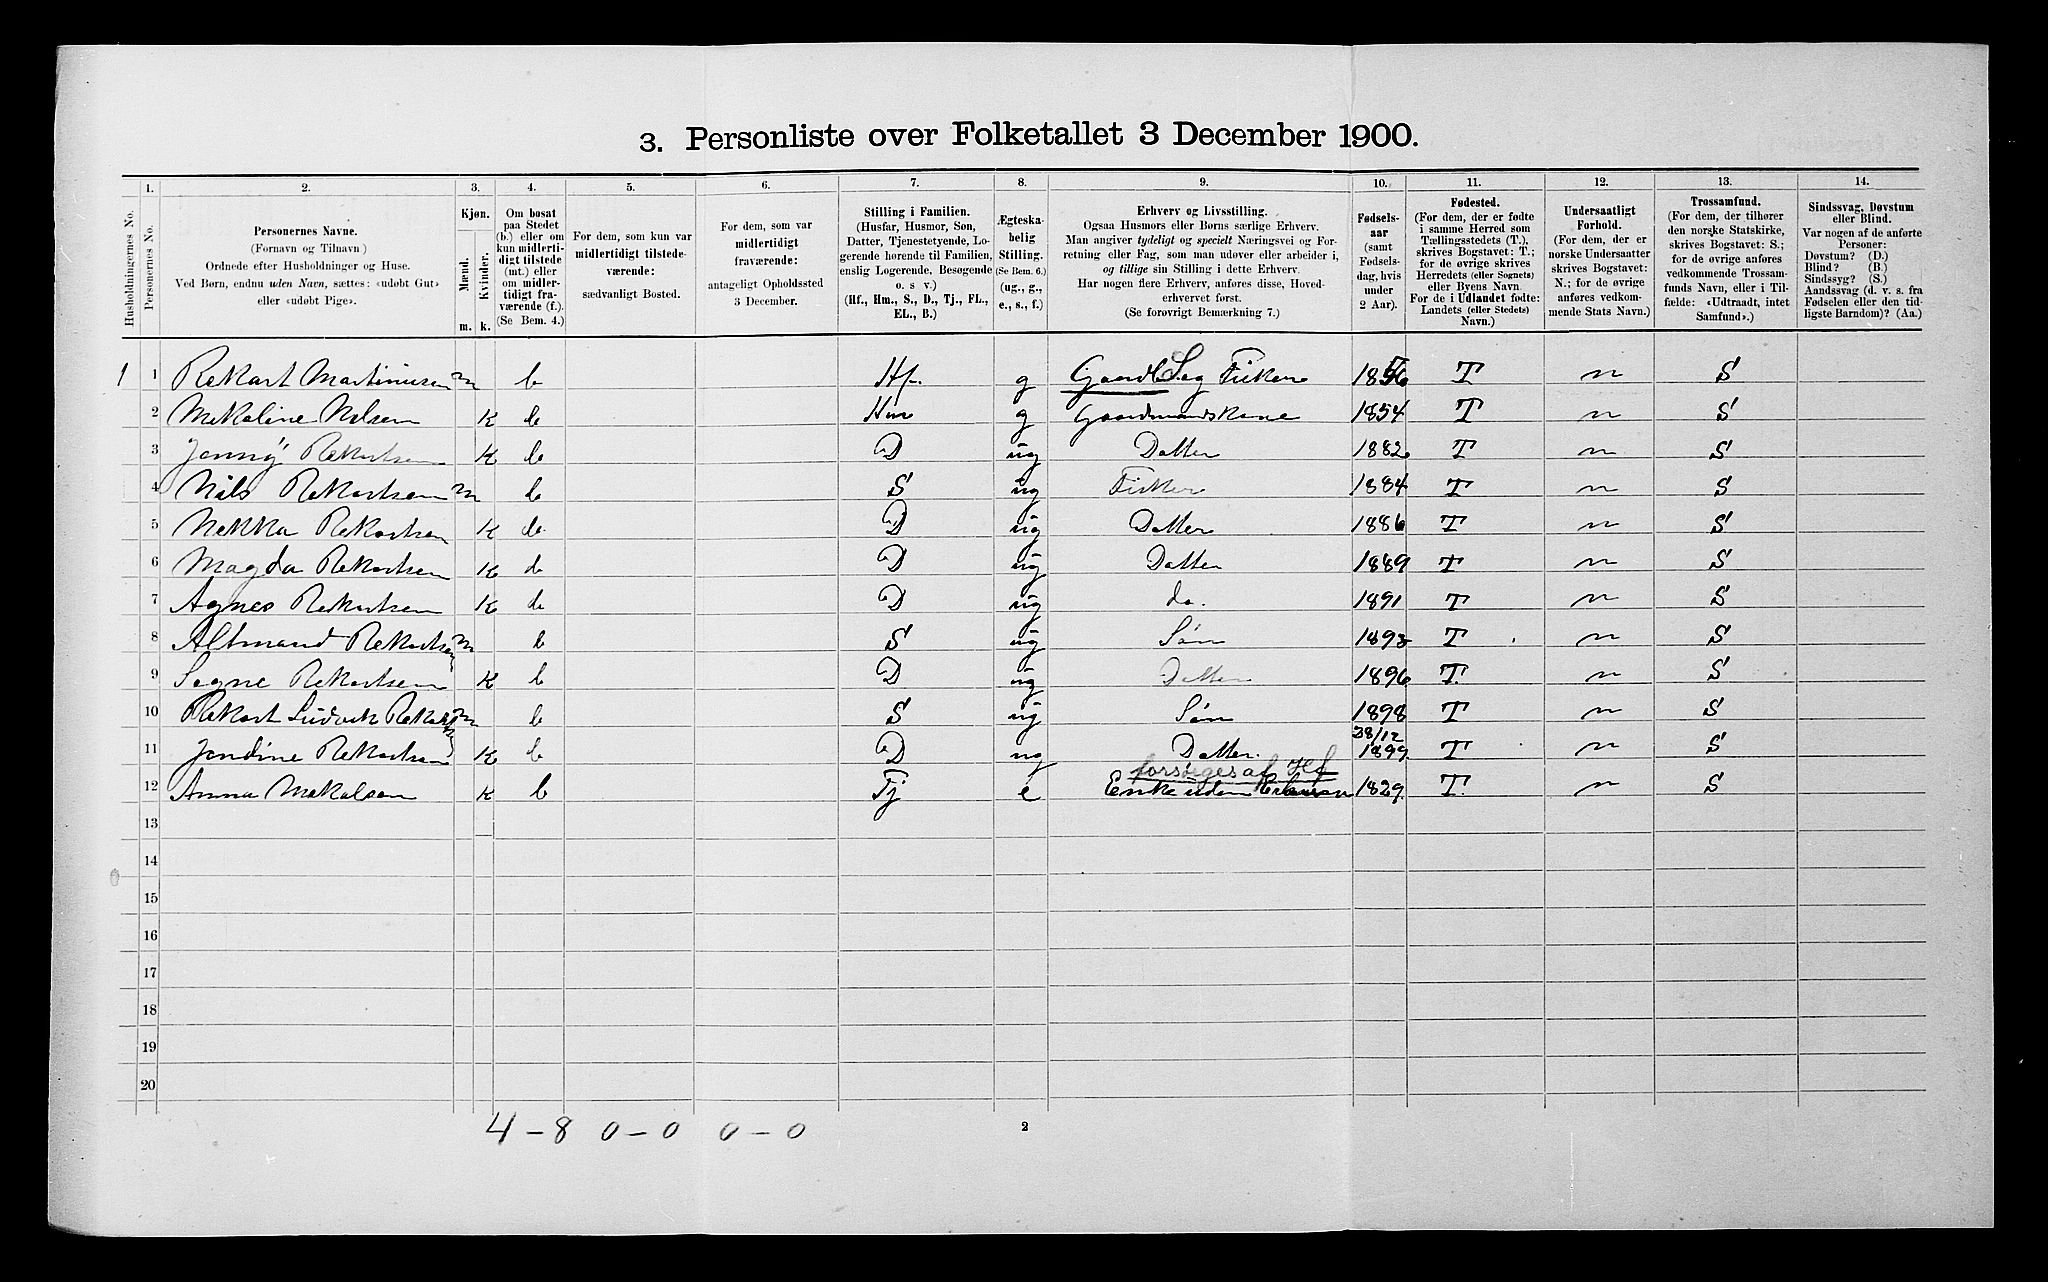 3. Personliste over Folketallet 3 December 1900.
Husholdningernes No.
1. Personernes No.
2. Personernes Navne.
(Fornavn og Tilnavn)
Ordnede efter Husholdninger og Huse.
Ved Børn, endnu uden Navn, sættes: «udøbt Gut»
eller «udøbt Pige».
3. Kjøn.
Mænd. Kvinder.
m. k.
4. Om bosat
paa Stedet
(b.) eller om
kun midlerti-
digt tilstede
(mt.) eller
om midler-
tidigt fra-
værende (f.).
(Se Bem. 4.)
5. For dem, som kun var
midlertidigt tilstede-
værende:
sædvanligt Bosted.
6. For dem, som var
midlertidigt
fraværende:
antageligt Opholdssted
3 December.
7. Stilling i Familien.
(Husfar, Husmor, Søn,
Datter, Tjenestetyende, Lo-
gerende hørende til Familien,
enslig Logerende, Besøgende
o. s v.)
(Hf., Hm., S., D., Tj., FL.,
EL., B.)
8. Ægteska-
belig
Stilling.
(Se Bem. 6.)
(ug., g.,
e., s., f.)
9. Erhverv og Livsstilling.
Ogsaa Husmors eller Børns særlige Erhverv.
Man angiver tydeligt og specielt Næringsvei og For-
retning eller Fag, som man udøver eller arbeider i,
og tillige sin Stilling i dette Erhverv.
Har nogen flere Erhverv, anføres disse, Hoved-
erhvervet først.
(Se forøvrigt Bemærkning 7.)
10. Fødsels-
aar
(samt
Fødsels-
dag, hvis
under
2 Aar).
11. Fødested.
(For dem, der er fødte
i samme Herred som
Tællingsstedets (T.),
skrives Bogstavet: T.;
for de øvrige skrives
Herredets (eller Sognets)
eller Byens Navn.
For de i Udlandet fødte:
Landets (eller Stedets)
Navn.)
12. Undersaatligt
Forhold.
(For dem, der er
norske Undersaatter
skrives Bogstavet:
N.; for de øvrige
anføres vedkom-
mende Stats Navn.)
13. Trossamfund.
(For dem, der tilhører
den norske Statskirke,
skrives Bogstavet: S.;
for de øvrige anføres
vedkommende Trossam-
funds Navn, eller i Til-
fælde: «Udtraadt, intet
Samfund».)
14. Sindssvag, Døvstum
eller Blind.
Var nogen af de anførte
Personer:
Døvstum? (D.)
Blind? (B.)
Sindssyg? (S.)
Aandssvag (d. v. s. fra
Fødselen eller den tid-
ligste Barndom)? (Aa.)
1 1 Rekart Martinusen m b Hf. g Gaardb. S. og Fisker 1856 T n S
2 Mekaline Nilsen K b Hm g Gaardmandskone 1854 T n S
3 Jenny Rekartsen K b D ug Datter 1882 T n S
4 Nils Rekartsen m b S ug Fisker 1884 T n S
5 Nekka Rekartsen K b D ug Datter 1886 T n S
6 Magda Rekartsen K b D ug Datter 1889 T n S
7 Agnes Rekartsen K b D ug do. 1891 T n S
8 Altmand Rekartsen m b S ug Søn 1893 T n S
9 Sogne Rekartsen K b D ug Datter 1896 T n S
10 Rekart Ludvik Rekartsen m b S ug Søn 1898 T n S
11 Jondine Rekartsen K b D ug Datter. 28/12 1899 T n S
forsørges af Hf
12 Anna Mekalsen K b Tj e Enke uden Erhverv 1829 T n S
13
14
15
16
17
18
19
20
4 - 8 0 - 0 0 - 0
2